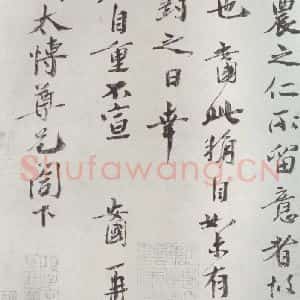 農之仁不留意者
也 安國此稍自
對之日幸
自重不宣 安國再
太傅尊兄閣下
Shufawang.CN